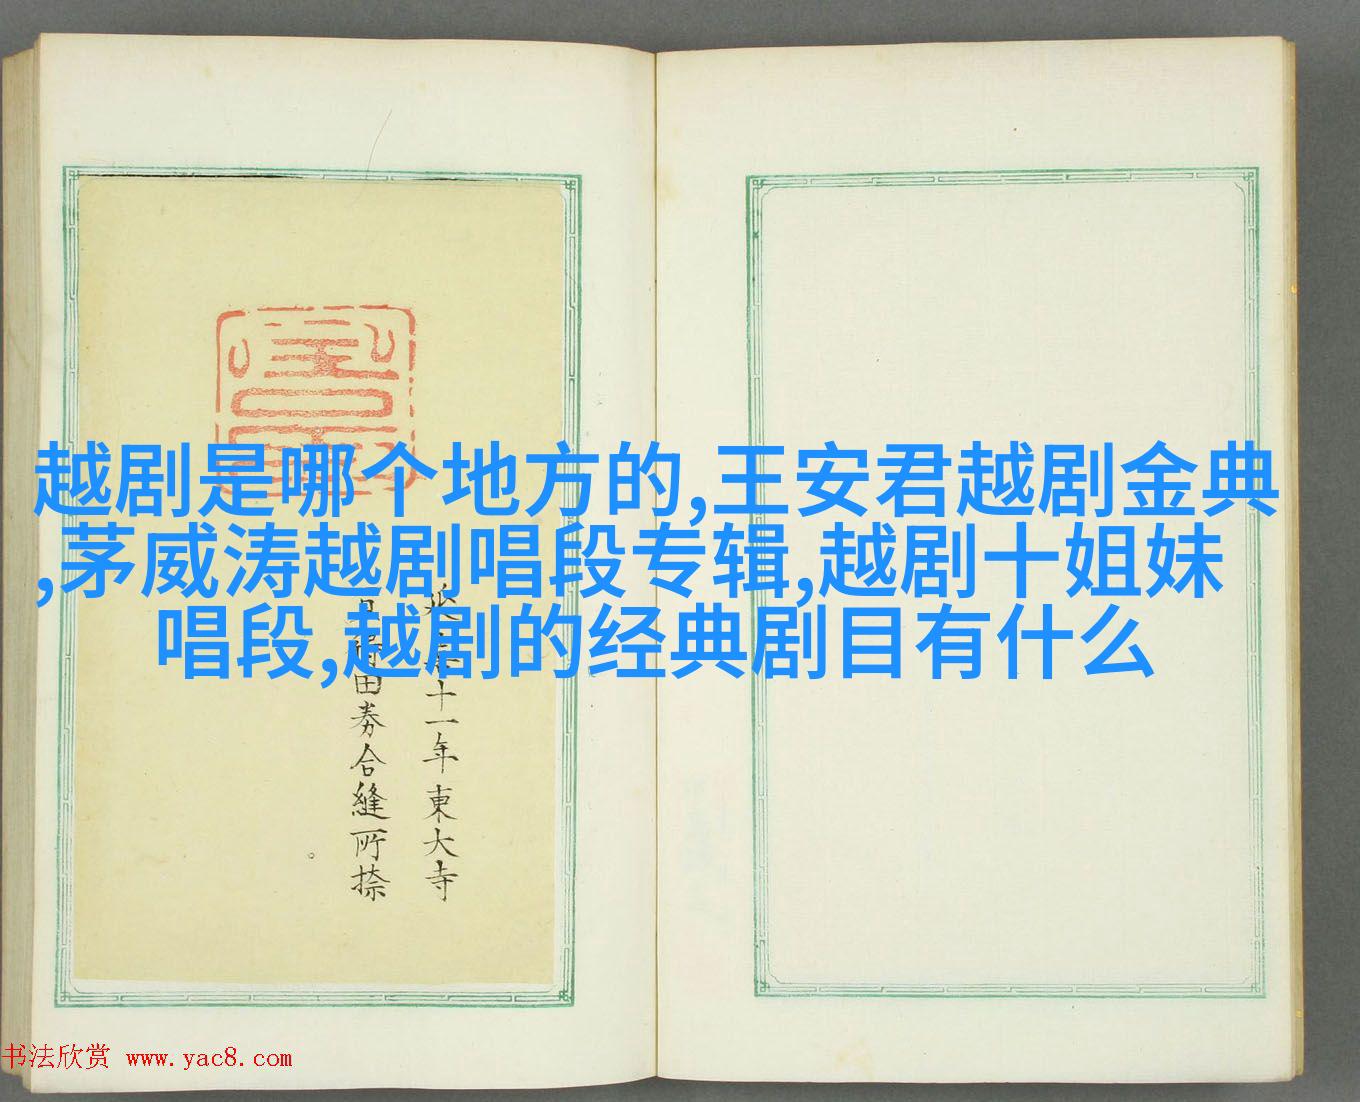 越剧是哪个地方的,王安君越剧金典
,茅威涛越剧唱段专辑,越剧十姐妹
唱段,越剧的经典剧目有什么
十一年東大寺
田券合縫所捺
书法欣赏 www.yac8.com